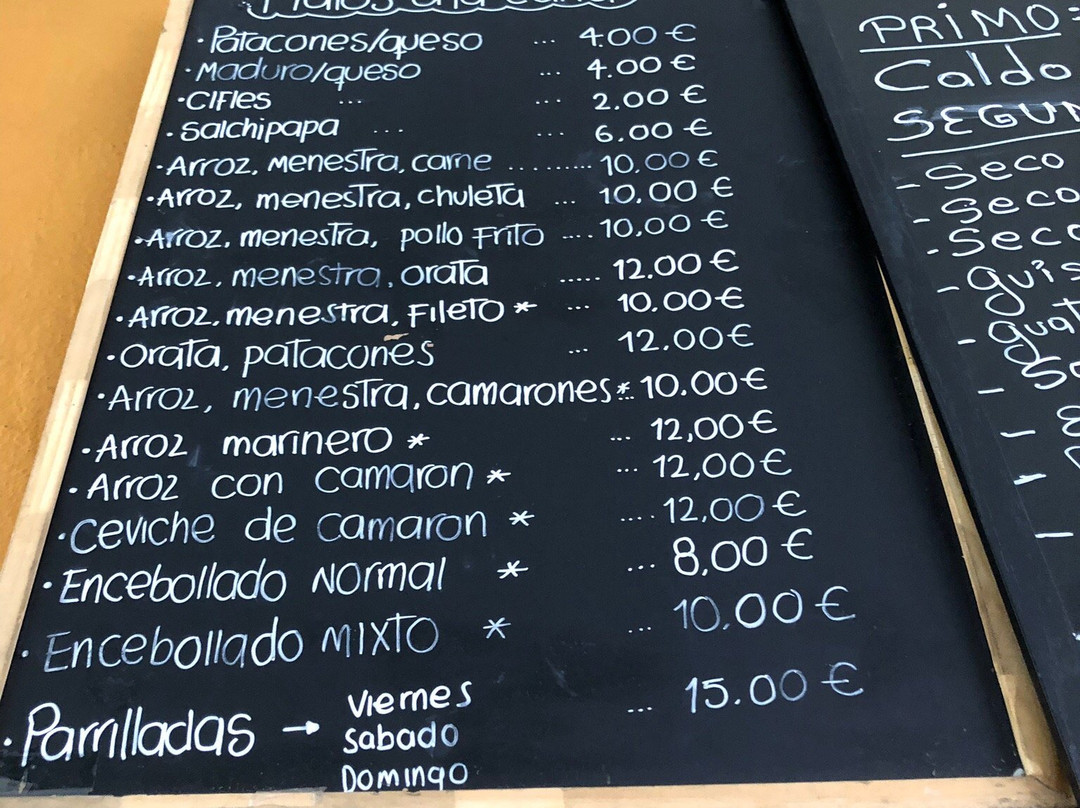 • Patacones/queso ... 4.00 €
• Maduro/queso ... 4.00 €
• Cifles ... ... 2.00 €
• Salchipapa ... ... 6.00 €
• Arroz, menestra, carne .......... 10.00 €
• Arroz, menestra, chuleta ... 10.00 €
• Arroz, menestra, pollo Frito .... 10,00 €
• Arroz, menestra, orata ..... 12.00 €
• Arroz, menestra, Fileto * ... 10.00 €
• Orata, patacones ... 12.00 €
• Arroz, menestra, camarones * .. 10.00 €
• Arroz marinero * ... 12,00 €
• Arroz con camaron * ... 12,00 €
• Ceviche de camaron * .... 12,00 €
• Encebollado Normal * ... 8,00 €
• Encebollado MIXTO * ... 10.00 €
• Parrilladas → Viernes ... 15.00 €
Sabado
Domingo
PRIMO:
Caldo
Seco
Seco
Seco